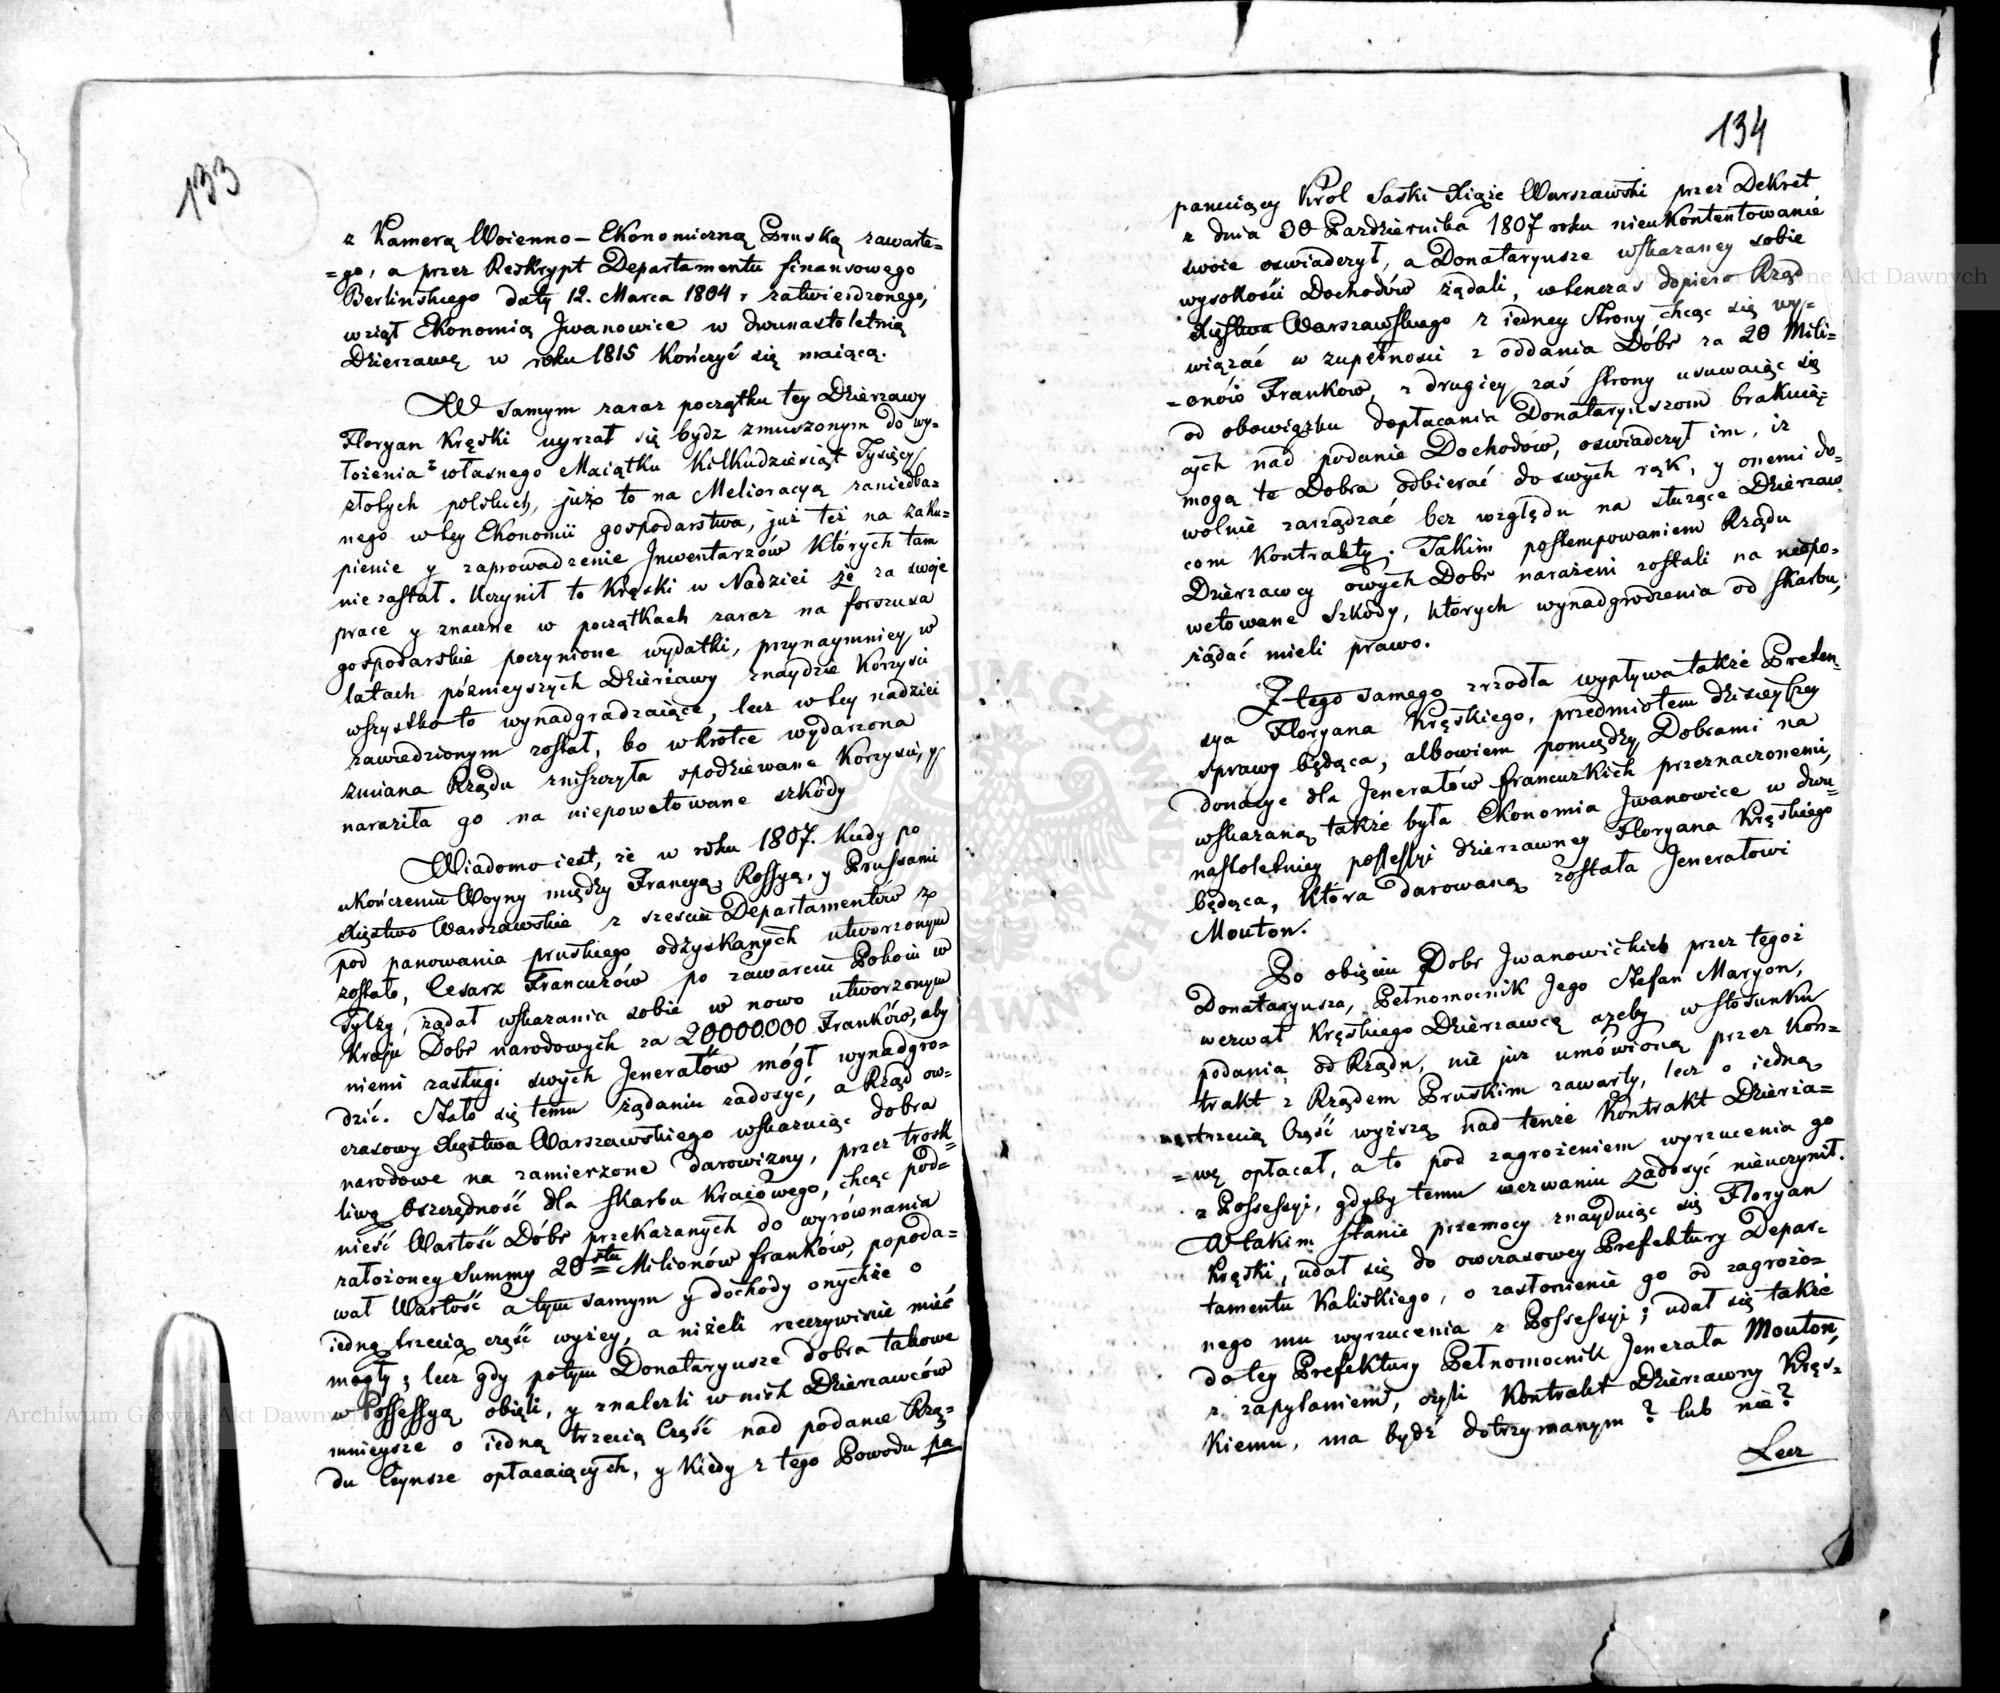 133
z Kamerą Woienno-Ekonomiczną Pruską zawarte=
=go, a przez Reskrypt Departamentu finansowego
Berlinskiego daty 12. Marca 1804 r zatwierdzonego,
wziął Ekonomią Jwanowice w dwunastoletnią
Dzierzawę w roku 1815 kończyć się maiącą.
W samym zaraz początku tey Dzierzawy
Floryan Kręski uyrzał się bydz zmuszonym do wy=
łożenia z własnego Maiątku kilkudziesiąt Tysięcy
złotych polskich, jużo to na Melioracyą zaniedba=
nego w tey Ekonomii gospodarstwa, już też na zaku=
pienie y zaprowadzenie Jnwentarzów których tam
nie zastał. Uczynił to Kręski w Nadziei że za swoje
prace y znaczne w początkach zaraz na forszusa
gospodarskie poczynione wydatki, przynaymniey w
latach poźnieyszych Dzierzawy znaydzie korzyści
wszystko to wynadgradzaiące, lecz w tey nadziei
zawiedzionym został, bo wkrotce wydarzona
zmiana Rządu zniszczyła spodziewane korzyści, y
naraziła go na niepowetowane szkody
Wiadomo iest, że w roku 1807. kiedy po
ukończeniu Woyny między Francyą, Rossyą, y Prussami
Xięstwo Warszawskie z sześciu Departamentów z
pod panowania pruskiego odzyskanych utworzonym
zostało, Cesarz Francuzów po zawarciu Pokoiu w
Tylży, żądał wskazania sobie w nowo utworzonym
Kraju Dobr narodowych za 20000.000 Franków, aby
niemi zasługi swych Jenerałów mógł wynadgro=
dzić. Stało się temu żądaniu zadosyć, a Rząd ow=
czasowy Xięstwa Warszawskiego wskazuiąc dobra
narodowe na zamierzone darowizny, przez trosk=
liwą oszczędność dla skarbu kraiowego, chcąc pod=
nieść Wartość Dóbr przekazanych do wyrównania
założoney Summy 20stu Milionów franków, popoda=
wał Wartość a tym samym y dochody onychże o
iedną trzecią część wyżey, a niżeli rzeczywiście mieć
mogły; lecz gdy potym Donataryusze dobra takowe
w Possessyą obięli, y znalezli w nich Dzierzawców
mnieysze o iedną trzecią Część nad podanie Rzą=
du Czynsze opłacaiących, y kiedy z tego Powodu pa
134
panuiący Król Saski Xiąże Warszawski przez Dekret
z dnia 30 Pazdziernika 1807 roku nieukontentowanie
swoie oswiadczył, a Donataryusze wskazaney sobie
wysokości Dochodów żądali, wtenczas dopiero Rząd
Xięstwa Warszawskiego z iedney Strony chcąc się wy=
wiązać w zupełności z oddania Dóbr za 20 Mili=
=onów Franków, z drugiey zaś strony usuwaiąc się
od obowiązku dopłacania Donataryuszom brakuią=
cych nad podanie Dochodów, oswiadczył im, iz
mogą te Dobra odbierać do swych rąk, y onemi do=
wolnie zarządzać bez względu na służące Dzierzaw=
com Kontrakty. Takim postempowaniem Rządu
Dzierzawcy owych Dobr narażeni zostali na niepo=
wetowane Szkody, których wynadgrodzenia od skarbu,
żądać mieli prawo.
Z tego samego zrzodła wypływa także Preten=
sya Floryana Kręskiego, przedmiotem dzisieyszey
sprawy będąca, albowiem pomiędzy Dobrami na
donacye dla Jenerałów francuzkich przeznaczonemi,
wskazaną także była Ekonomia Jwanowice w dwu=
nastoletniey possessyi dzierzawney Floryana Kręskiego
będąca, która darowaną została Jenerałowi
Mouton.
Po obięciu Dobr Jwanowickich przez tegoż
Donataryusza, Pełnomocnik Jego Stefan Maryon,
wezwał Kręskiego Dzierzawcę azeby w stosunku
podania od Rządu, nie już umówioną przez Kon=
trakt z Rządem Pruskim zawarty, lecz o iedną
trzecią Część wyższą nad tenże Kontrakt Dzierza=
=wę opłacał, a to pod zagrożeniem wyrzucenia go
z Possessyi, gdyby temu wezwaniu zadosyć nieuczynił.
W takim stanie przemocy znayduiąc się Floryan
Kręski, udał się do owczasowey Prefektury Depar=
tamentu Kaliskiego, o zasłonienie go od zagrożo=
nego mu wyrzucenia z Possessyi; udał się także
do tey Prefektury Pełnomocnik Jenerała Mouton,
z zapytaniem, czyli Kontrakt Dzierzawny Kręs=
kiemu, ma bydź dotrzymanym? lub nie?
Lecz
Archiwum Główne Akt Dawnych
Archiwum Główne Akt Dawnych